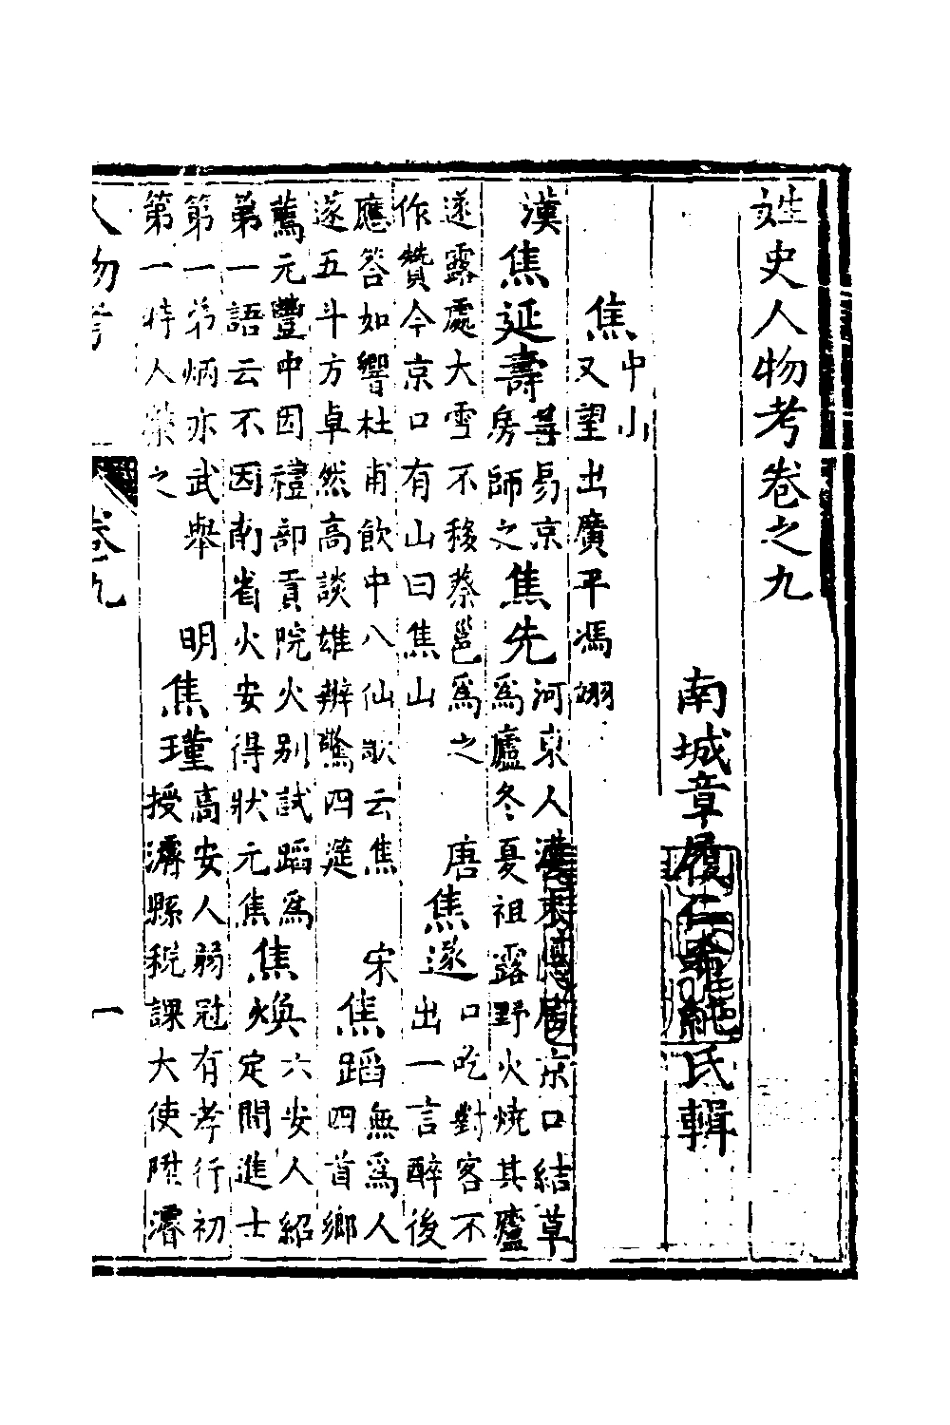 姓史人物考卷之九
南城章履仁希純氏輯
焦
中山
又望出廣平馮翊
漢焦延壽
善易京
房師之
焦先
河東人漢末居京口結草
為廬冬夏祖露野火燒其廬
遂露處大雪不移蔡邕為之
作贊今京口有山曰焦山
唐焦遂
口吃對客不
出一言醉後
應答如響杜甫飲中八仙歌云焦
遂五斗方卓然高談雄辨驚四筵
宋焦蹈
無為人
四首鄉
薦元豐中因禮部貢院火別試蹈為
第一語云不因南省火安得狀元焦
焦煥
六安人紹
定間進士
第一弟炳亦武舉
第一時人榮之
明焦瑾
高安人弱冠有孝行初
授濬縣稅課大使陞濬
人物考
卷九
一